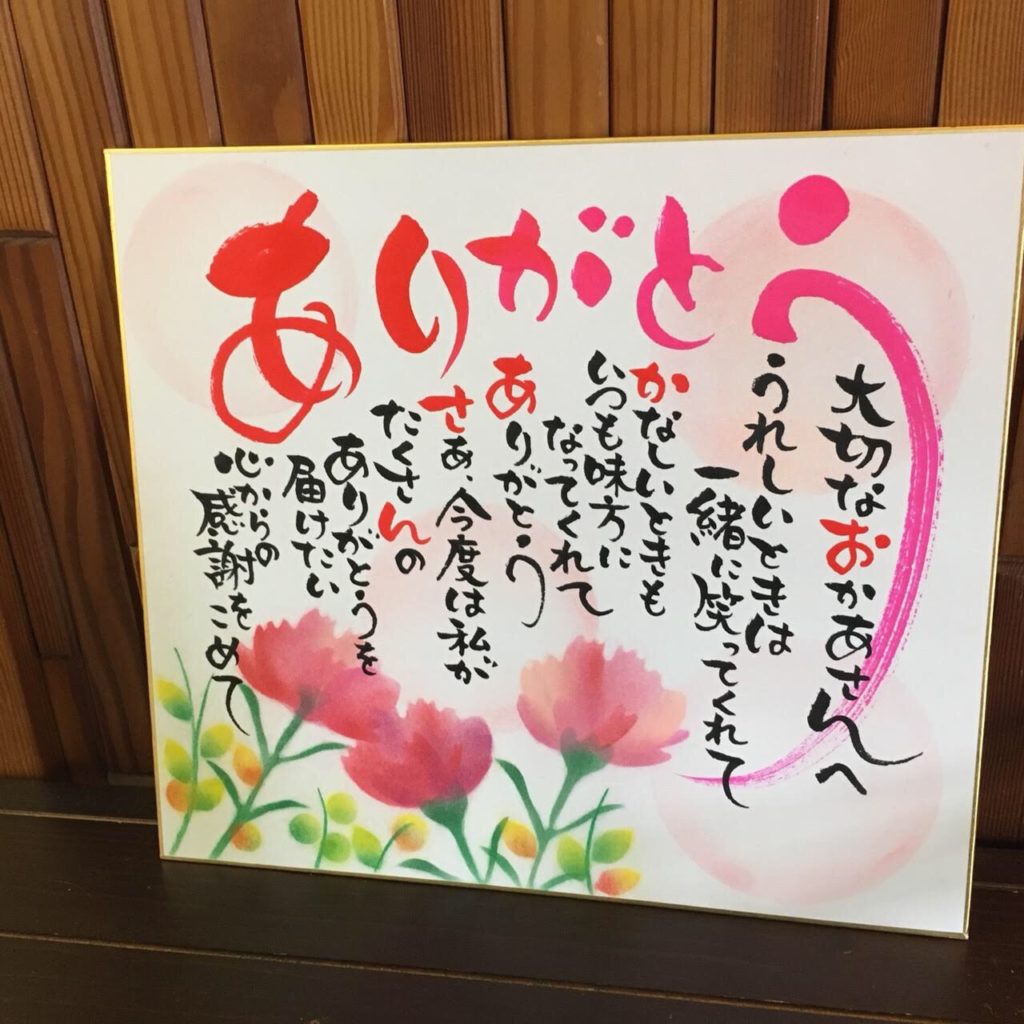 ありがとう
大切なおかあさんへ
うれしいときは
一緒に笑ってくれて
かなしいときも
いつも味方に
なってくれて
ありがとう
さあ、今度は私が
たくさんの
ありがとうを
届けたい
心からの
感謝をこめて